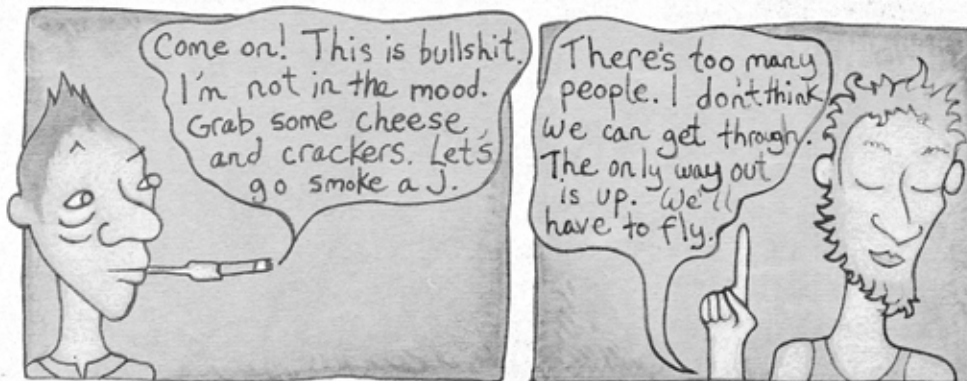 Come on! This is bullshit.
I'm not in the mood.
Grab some cheese
and crackers. Let's
go smoke a J.
There's too many
people. I don't think
we can get through.
The only way out
is up. We'll
have to fly.